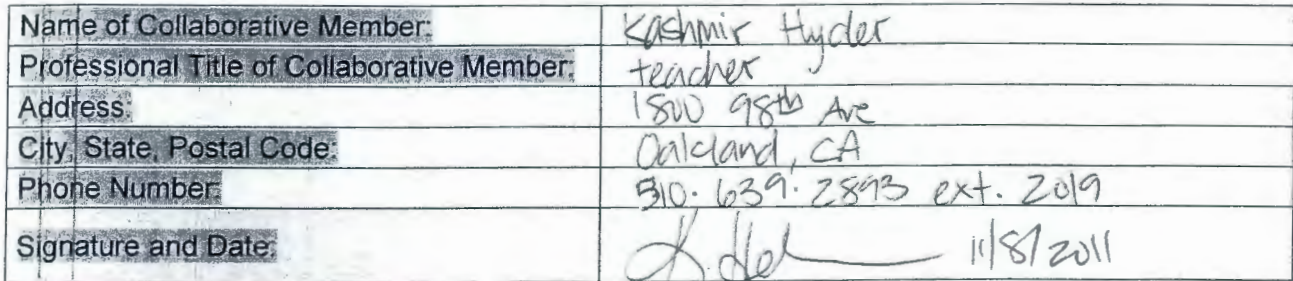 Name of Collaborative Member: Kashmir Hyder
Professional Title of Collaborative Member: teacher
Address: 1800 98th Ave
City, State, Postal Code: Oakland, CA
Phone Number: 510. 639. 2893 ext. 2019
Signature and Date: 11/8/2011